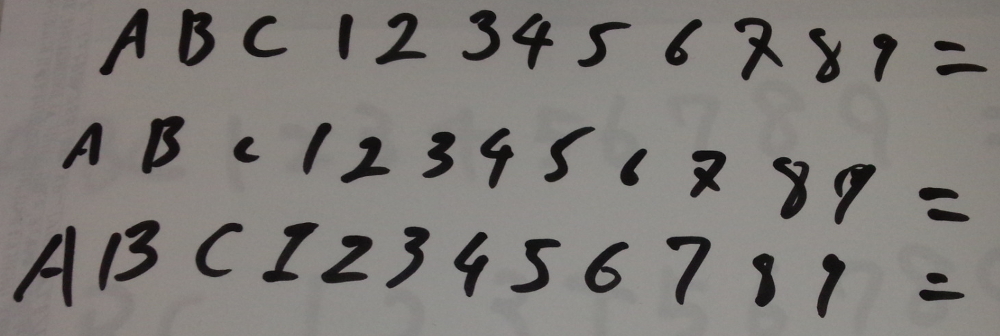 A B C 1 2 3 4 5 6 7 8 9 =
A B C 1 2 3 4 5 6 7 8 9 =
A B C I 2 3 4 5 6 7 8 9 =